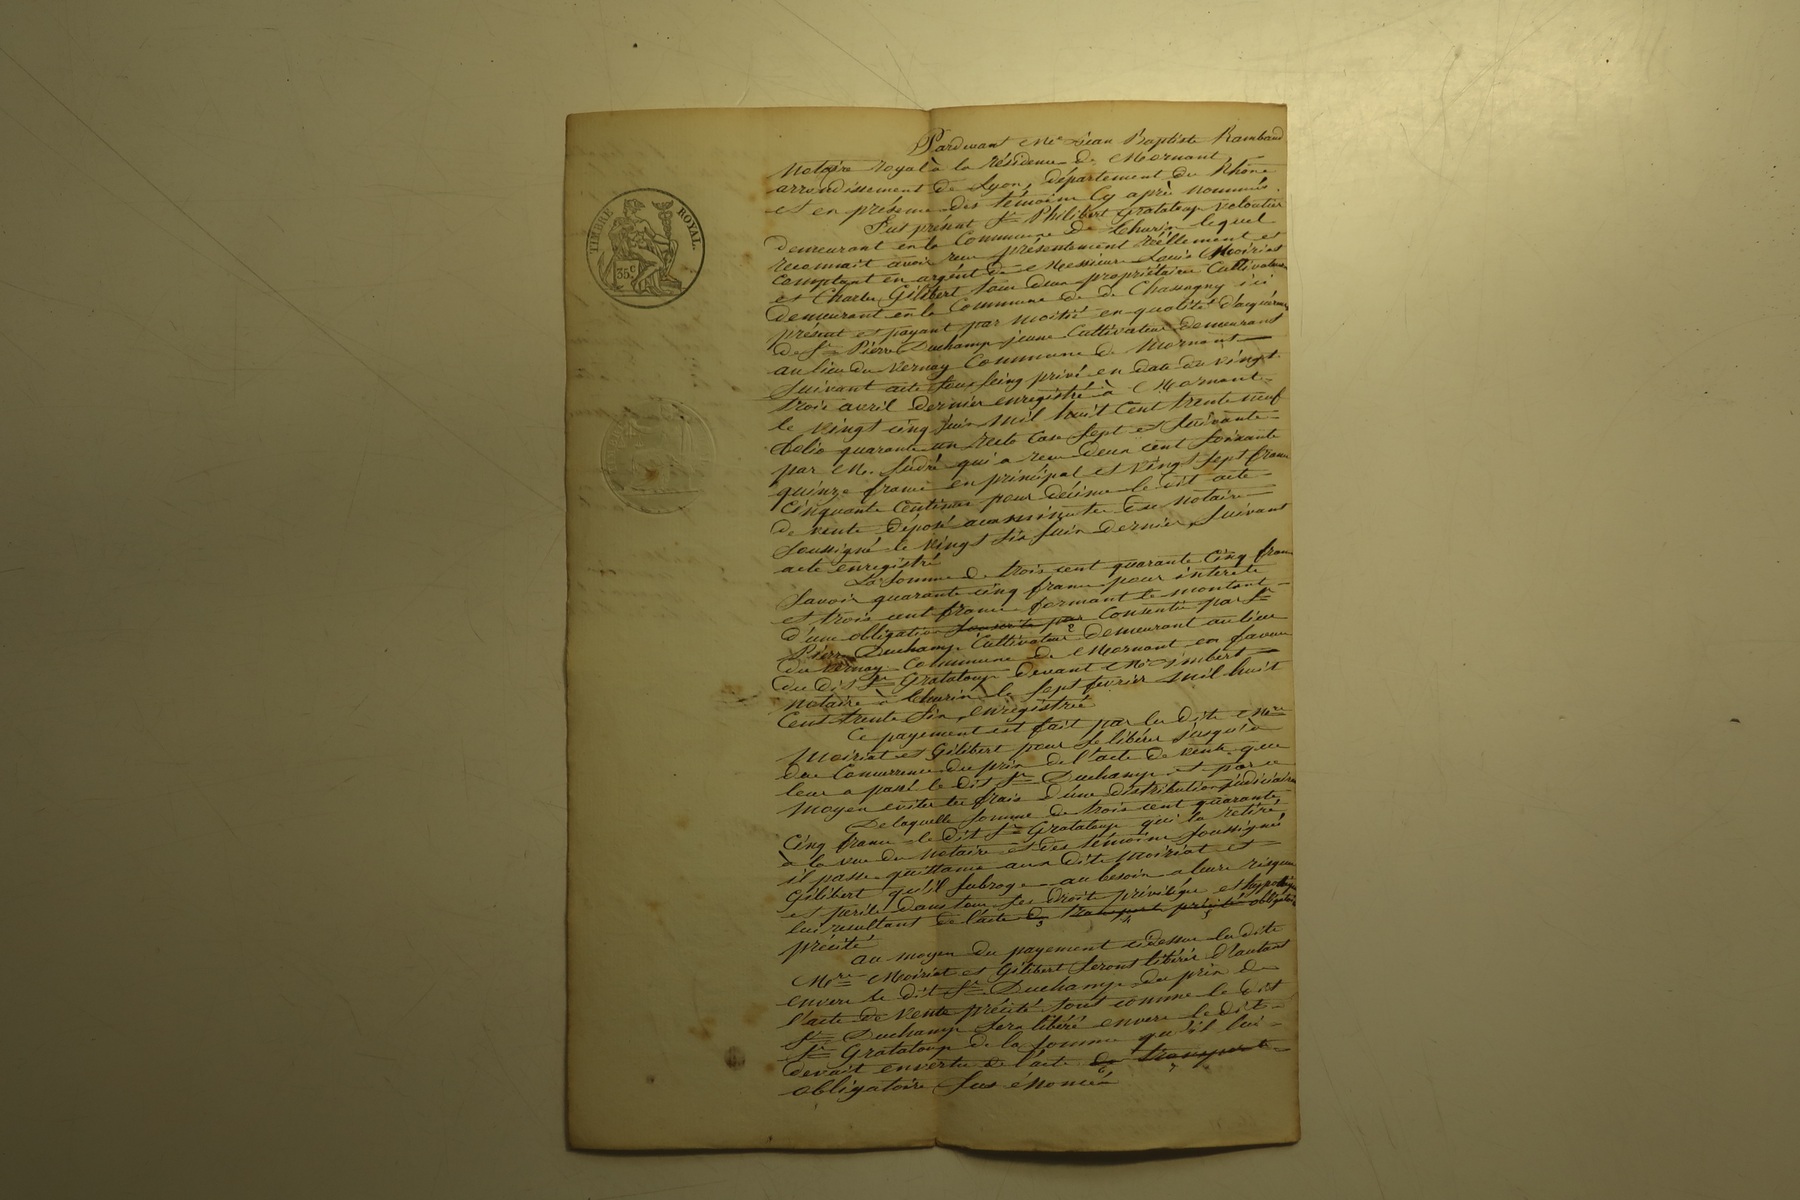 TIMBRE ROYAL.
35 c
Pardevant Me Jean Baptiste Rambaud
Notaire royal à la résidence de Mornant
arrondissement de Lyon, département du Rhône
et en présence des témoins cy après nommés.
Fut présent Sr Philibert Grataloup veloutier
demeurant en la Commune de Thurin lequel
reconnait avoir reçu présentement réellement et
comptant en argent de Messieurs Louis Moiriat
et Charles Gilibert tous deux propriétaires Cultivateurs
demeurant en la Commune de de Chassagny ici
présent et payant par moitié en qualité d'acquéreurs
de Sr Pierre Duchamp jeune Cultivateur demeurant
au lieu du Vernay Commune de Mornant
suivant acte sous seing privé en date du vingt
trois avril dernier enregistré à Mornant
le vingt cinq juin mil huit cent trente neuf
folio quarante un recto case sept et suivante
par Mr. qui a reçu deux cent soixante
quinze francs en principal et vingt sept francs
cinquante centimes pour décime le dit acte
de vente déposé aux minutes du notaire
soussigné le vingt six juin dernier, suivant
acte enregistré
La somme de trois cent quarante cinq francs
savoir quarante cinq francs pour intérêts
et trois cent francs formant le montant
d'une obligation souscrite par Consentie par Sr
Pierre Duchamp Cultivateur demeurant au lieu
du Vernay Commune de Mornant en faveur
du dit Sr Grataloup devant Me Imbert
notaire à Thurin le sept février mil huit
Cent trente six, enregistrée
Ce payement est fait par les dits Mrs
Moiriat et Gilibert pour se libérer jusqu'à
due Concurrence du prix de l'acte de vente que
leur a passé le dit Sr Duchamp et par ce
moyen eviter les frais d'une distribution judiciaire
De laquelle somme de trois cent quarante
Cinq francs le dit Sr Grataloup qui la retiré
à la vue du notaire et des témoins soussignés
il passe quittance aux dits Moiriat et
Gilibert qu'il subroge au besoin a leurs risques
et périls dans tous ses droits privilèges et hypothèques
lui résultant de l'acte de transport précité obligatoire
précité
au moyen du payement cidessus les dits
Mrs Moiriat et Gilibert seront libérés d'autant
envers le dit Sr Duchamp du prix de
l'acte de vente précité tout comme le dit
Sr Duchamp sera libéré envers le dit
Sr Grataloup de la somme qu'il lui
devait envertu de l'acte de transport
obligatoire sus énoncé